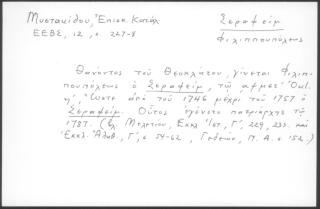 Μυστακίδου, Ἐπισκ. Κατάλ.
Σεραφείμ
ΕΕΒΣ, 12, σ. 227-8
Φιλιππουπόλεως
Θανόντος τοῦ Θεοκλήτου, γίνεται Φιλιπ-
πουπόλεως ὁ Σεραφείμ, τῷ αψμε' Ὀκτ.
ἀπὸ τοῦ 1746 μέχρι τοῦ 1757 ὁ
Σεραφείμ. Οὗτος ἐγένετο πατριάρχης τῷ
1757. (βλ. Μελετίου, Ἐκκλ. Ἱστ. Γ', 229, 233. καὶ
Ἐκκλ. Ἀλήθ., Γ', σ. 54-62, Γεδεών, Π. Α. σ. 152.)